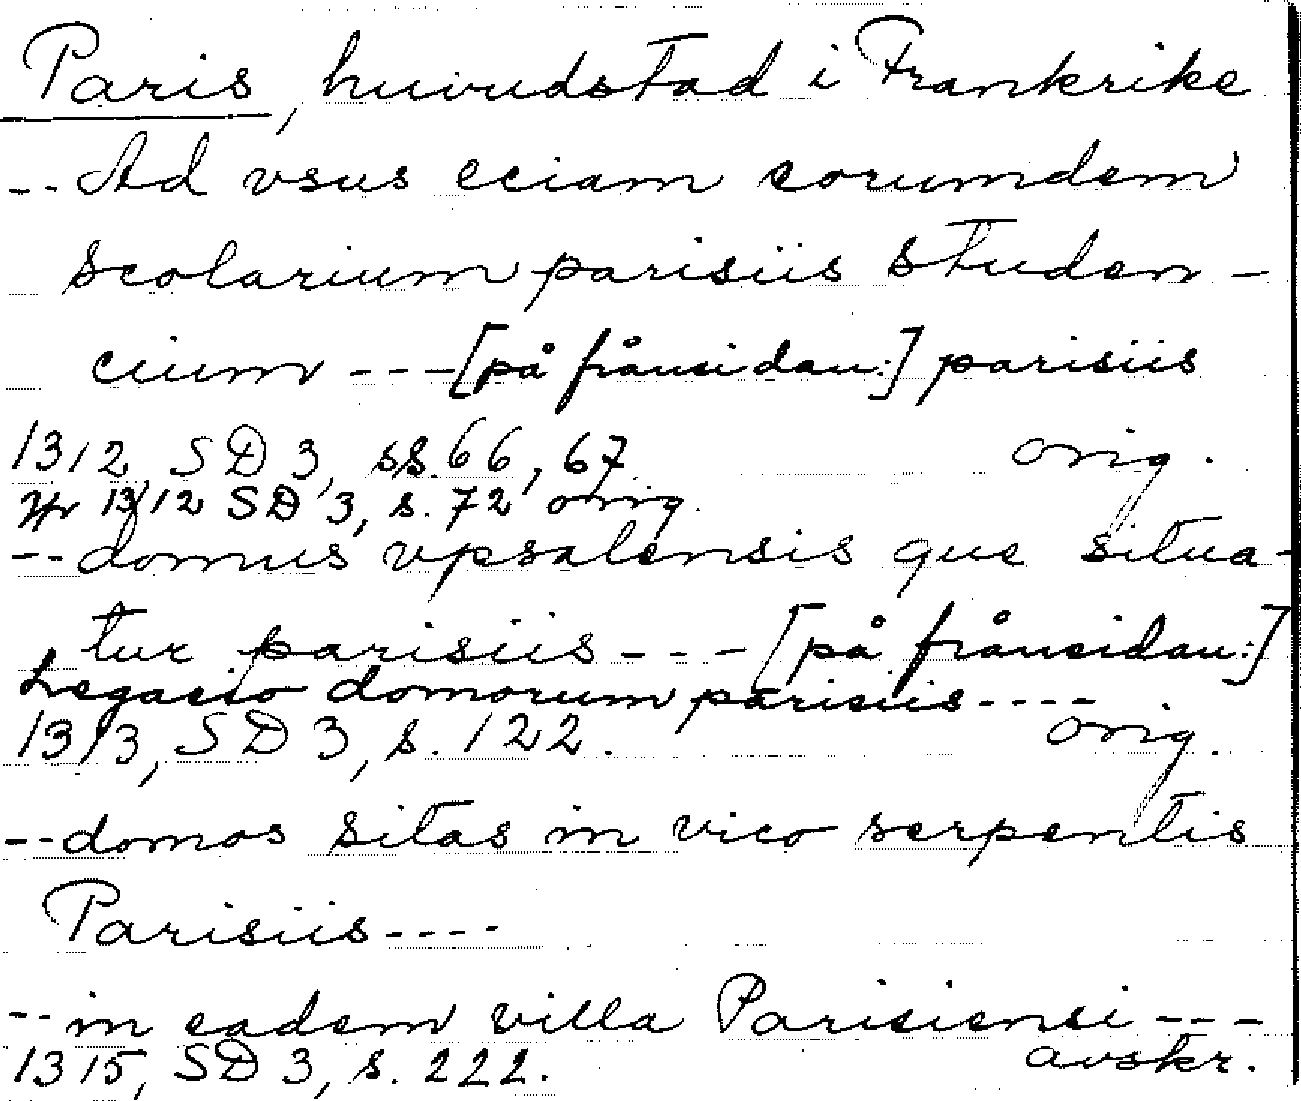 Paris, huvudstad i Frankrike
-- Ad vsus eciam eorumdem
scolarium parisiis studen-
cium --- [på frånsidan:] parisiis
1312, SD 3, ss. 66, 67 orig.
13/12 SD 3, s. 72 orig.
-- domus vpsalensis que situa-
tur parisiis --- [på frånsidan:]
Legacio domorum parisiis ----
1313, SD 3, s. 122. orig.
-- domos sitas in vico serpentis
Parisiis ----
-- in eadem villa Parisiensi ---
1315, SD 3, s. 222. avskr.